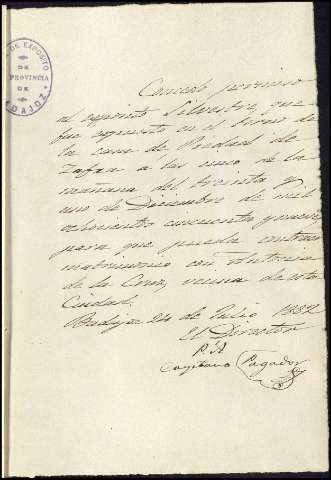 DE EXPOSITO
DE
PROVINCIA
DE
BADAJOZ
Concedo permiso
al expósito Silvestre, que
fue expuesto en el torno de
la casa de Piedad de
Zafra a las cinco de la
mañana del treinta y
uno de Diciembre de mil
ochocientos cincuenta y nueve
para que pueda contraer
matrimonio con Antonia
de la Cruz, vecina de esta
Ciudad.
Badajoz 24 de Julio 1882
El Director
P. A.
Cayetano Pagador